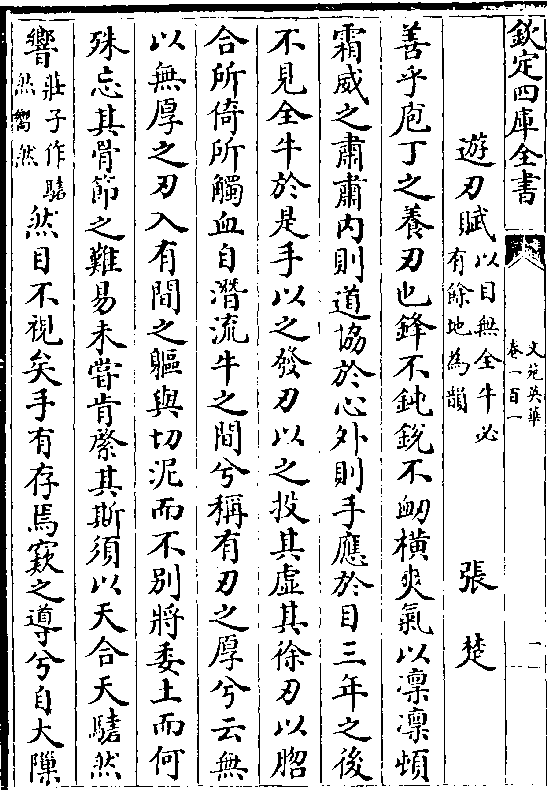 欽定四庫全書
文苑英華
卷一百一
一
遊刃賦
以目無全牛必
有餘地為韻
張楚
善乎庖丁之養刃也鋒不鈍銳不衂橫爽氣以凛凛頓
霜威之肅肅内則道協於心外則手應於目三年之後
不見全牛於是手以之發刃以之投其虛其徐刃以䐇
合所倚所觸血自潛流牛之間兮稱有刃之厚兮云無
以無厚之刃入有間之軀與切泥而不别將委土而何
殊忘其骨節之難易未嘗肯綮其斯須以天合天騞然
響
莊子作騞
然嚮然
然目不視矣手有存焉窾之導兮自大隟